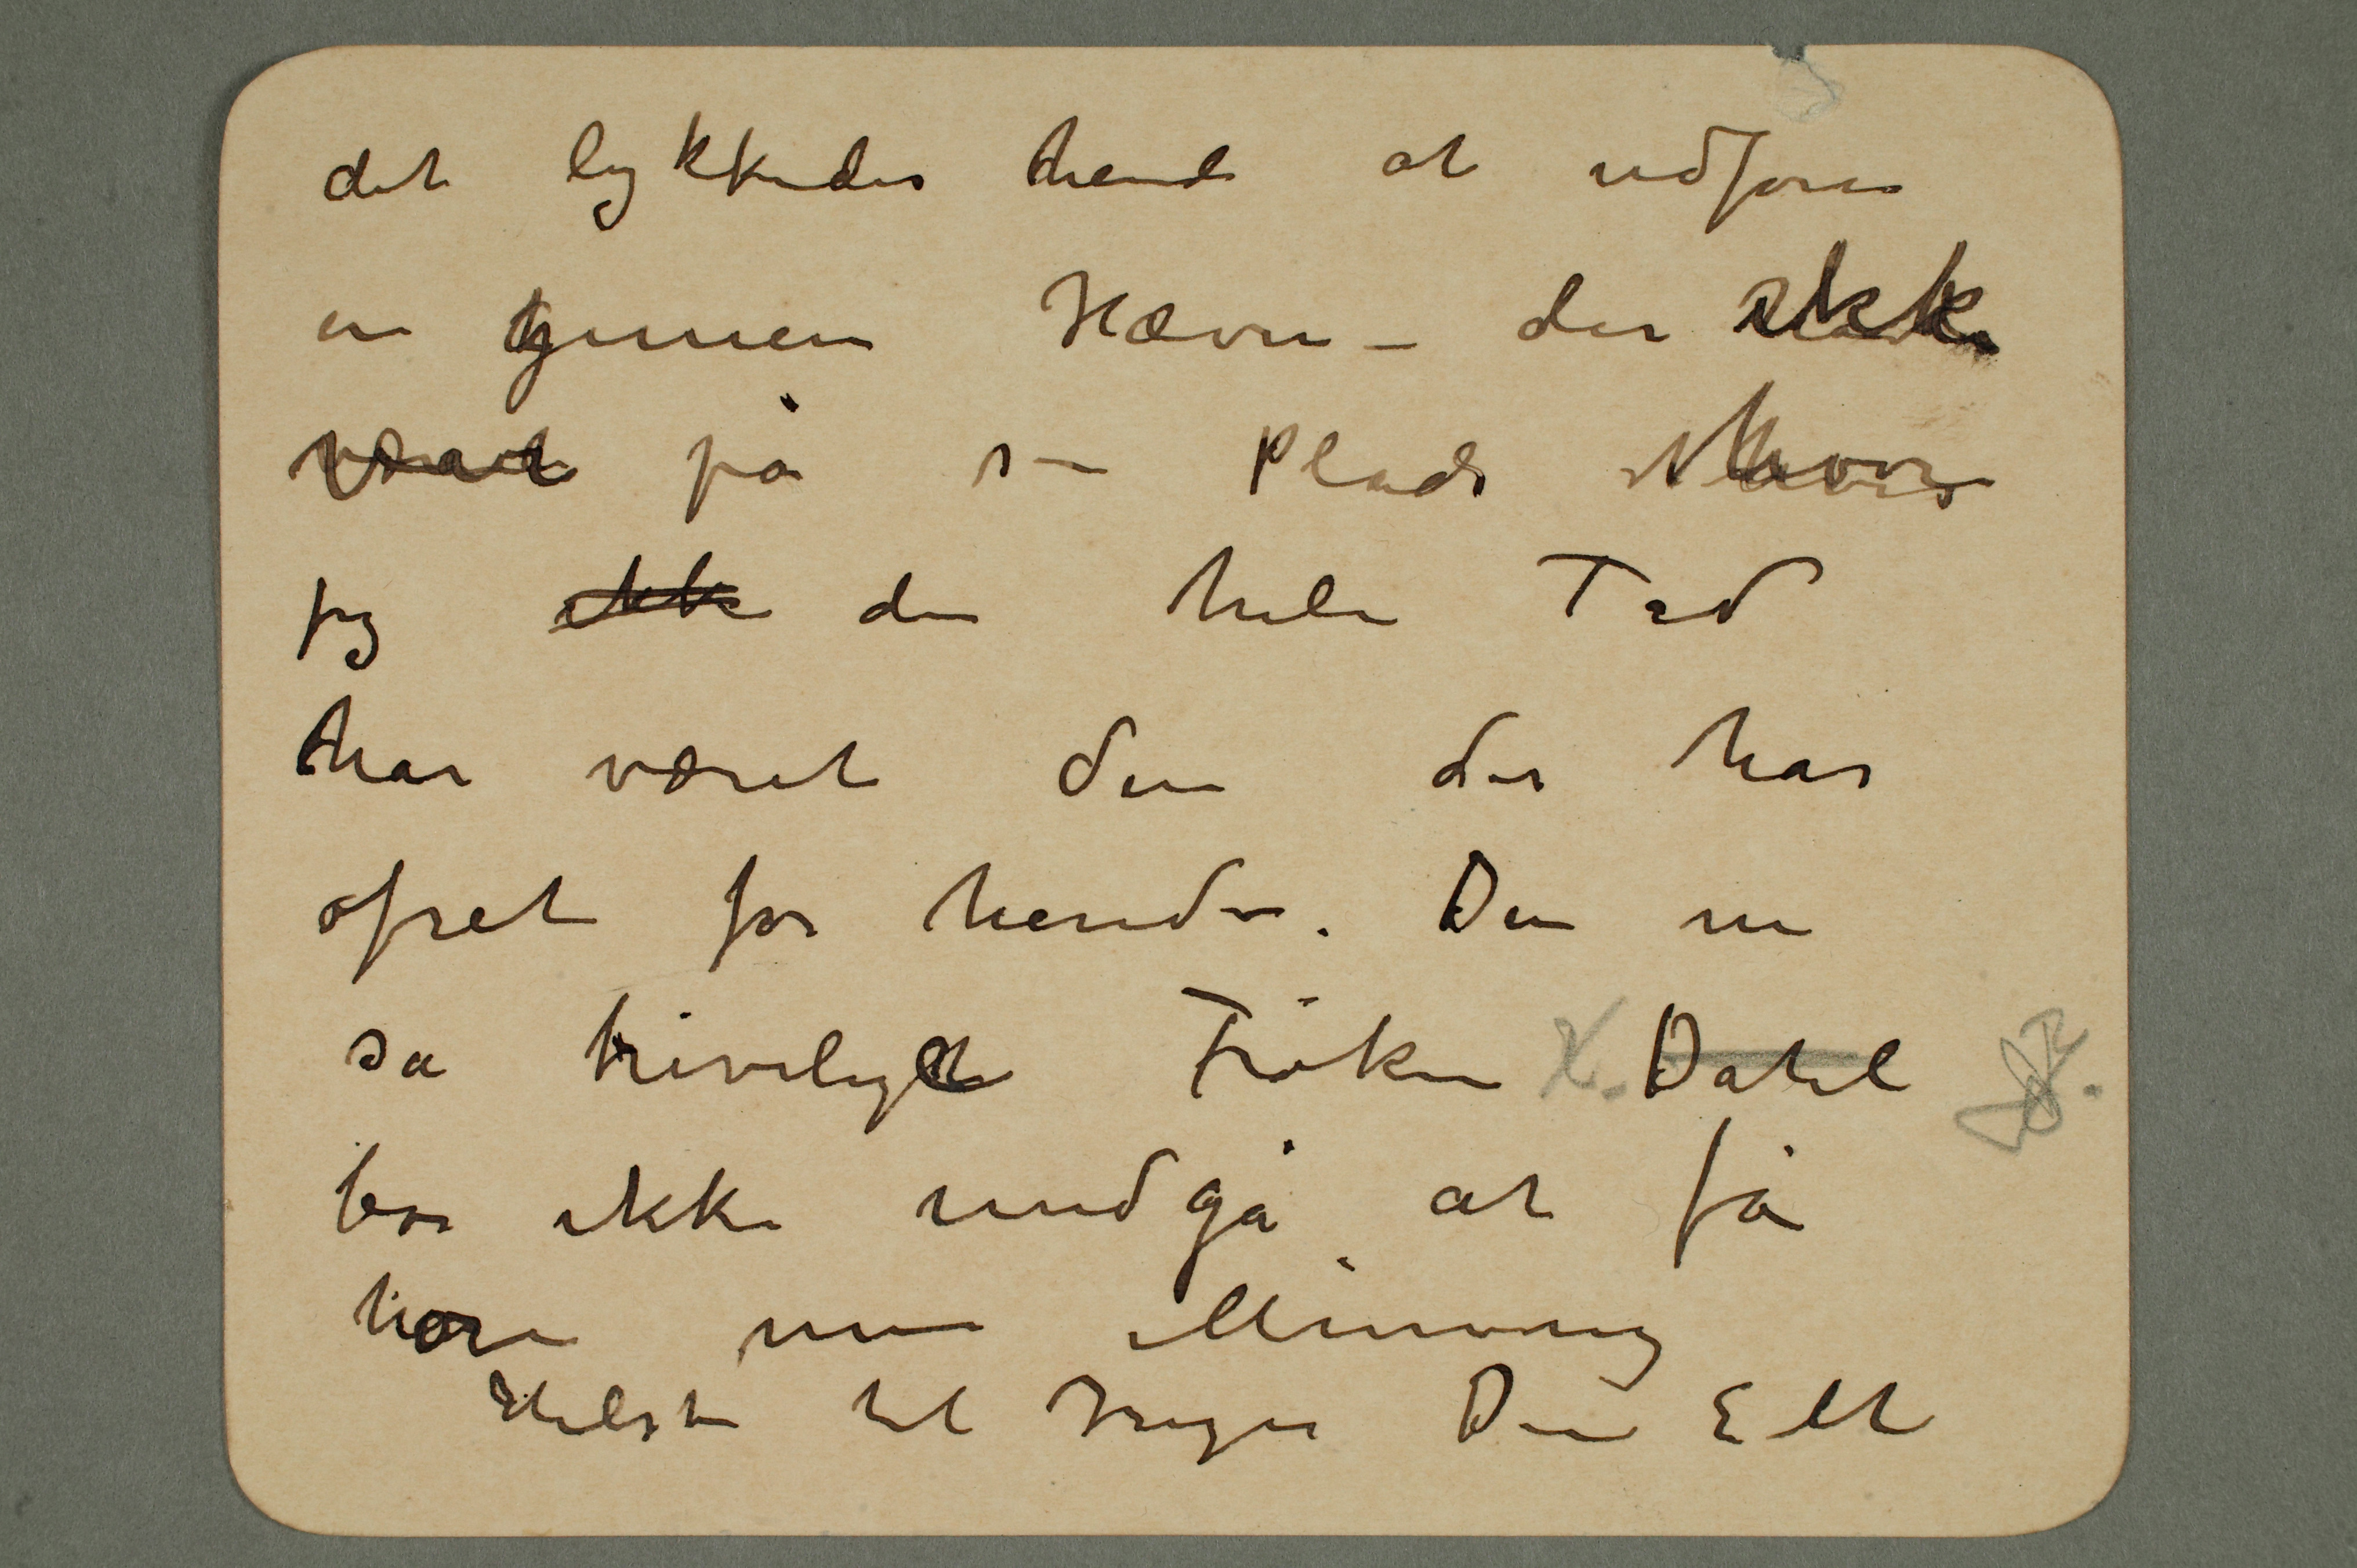 det lykkedes hende at udføre
en gemen Hævn – der ikke
været på sin Plads når
jeg ikke den hele Tid
har været den der har
ofret for hende. Den nu
så trivelige Frøken X. Dahl
bør ikke undgå at få
høre min Mening
Hilsen til Inger Din E M